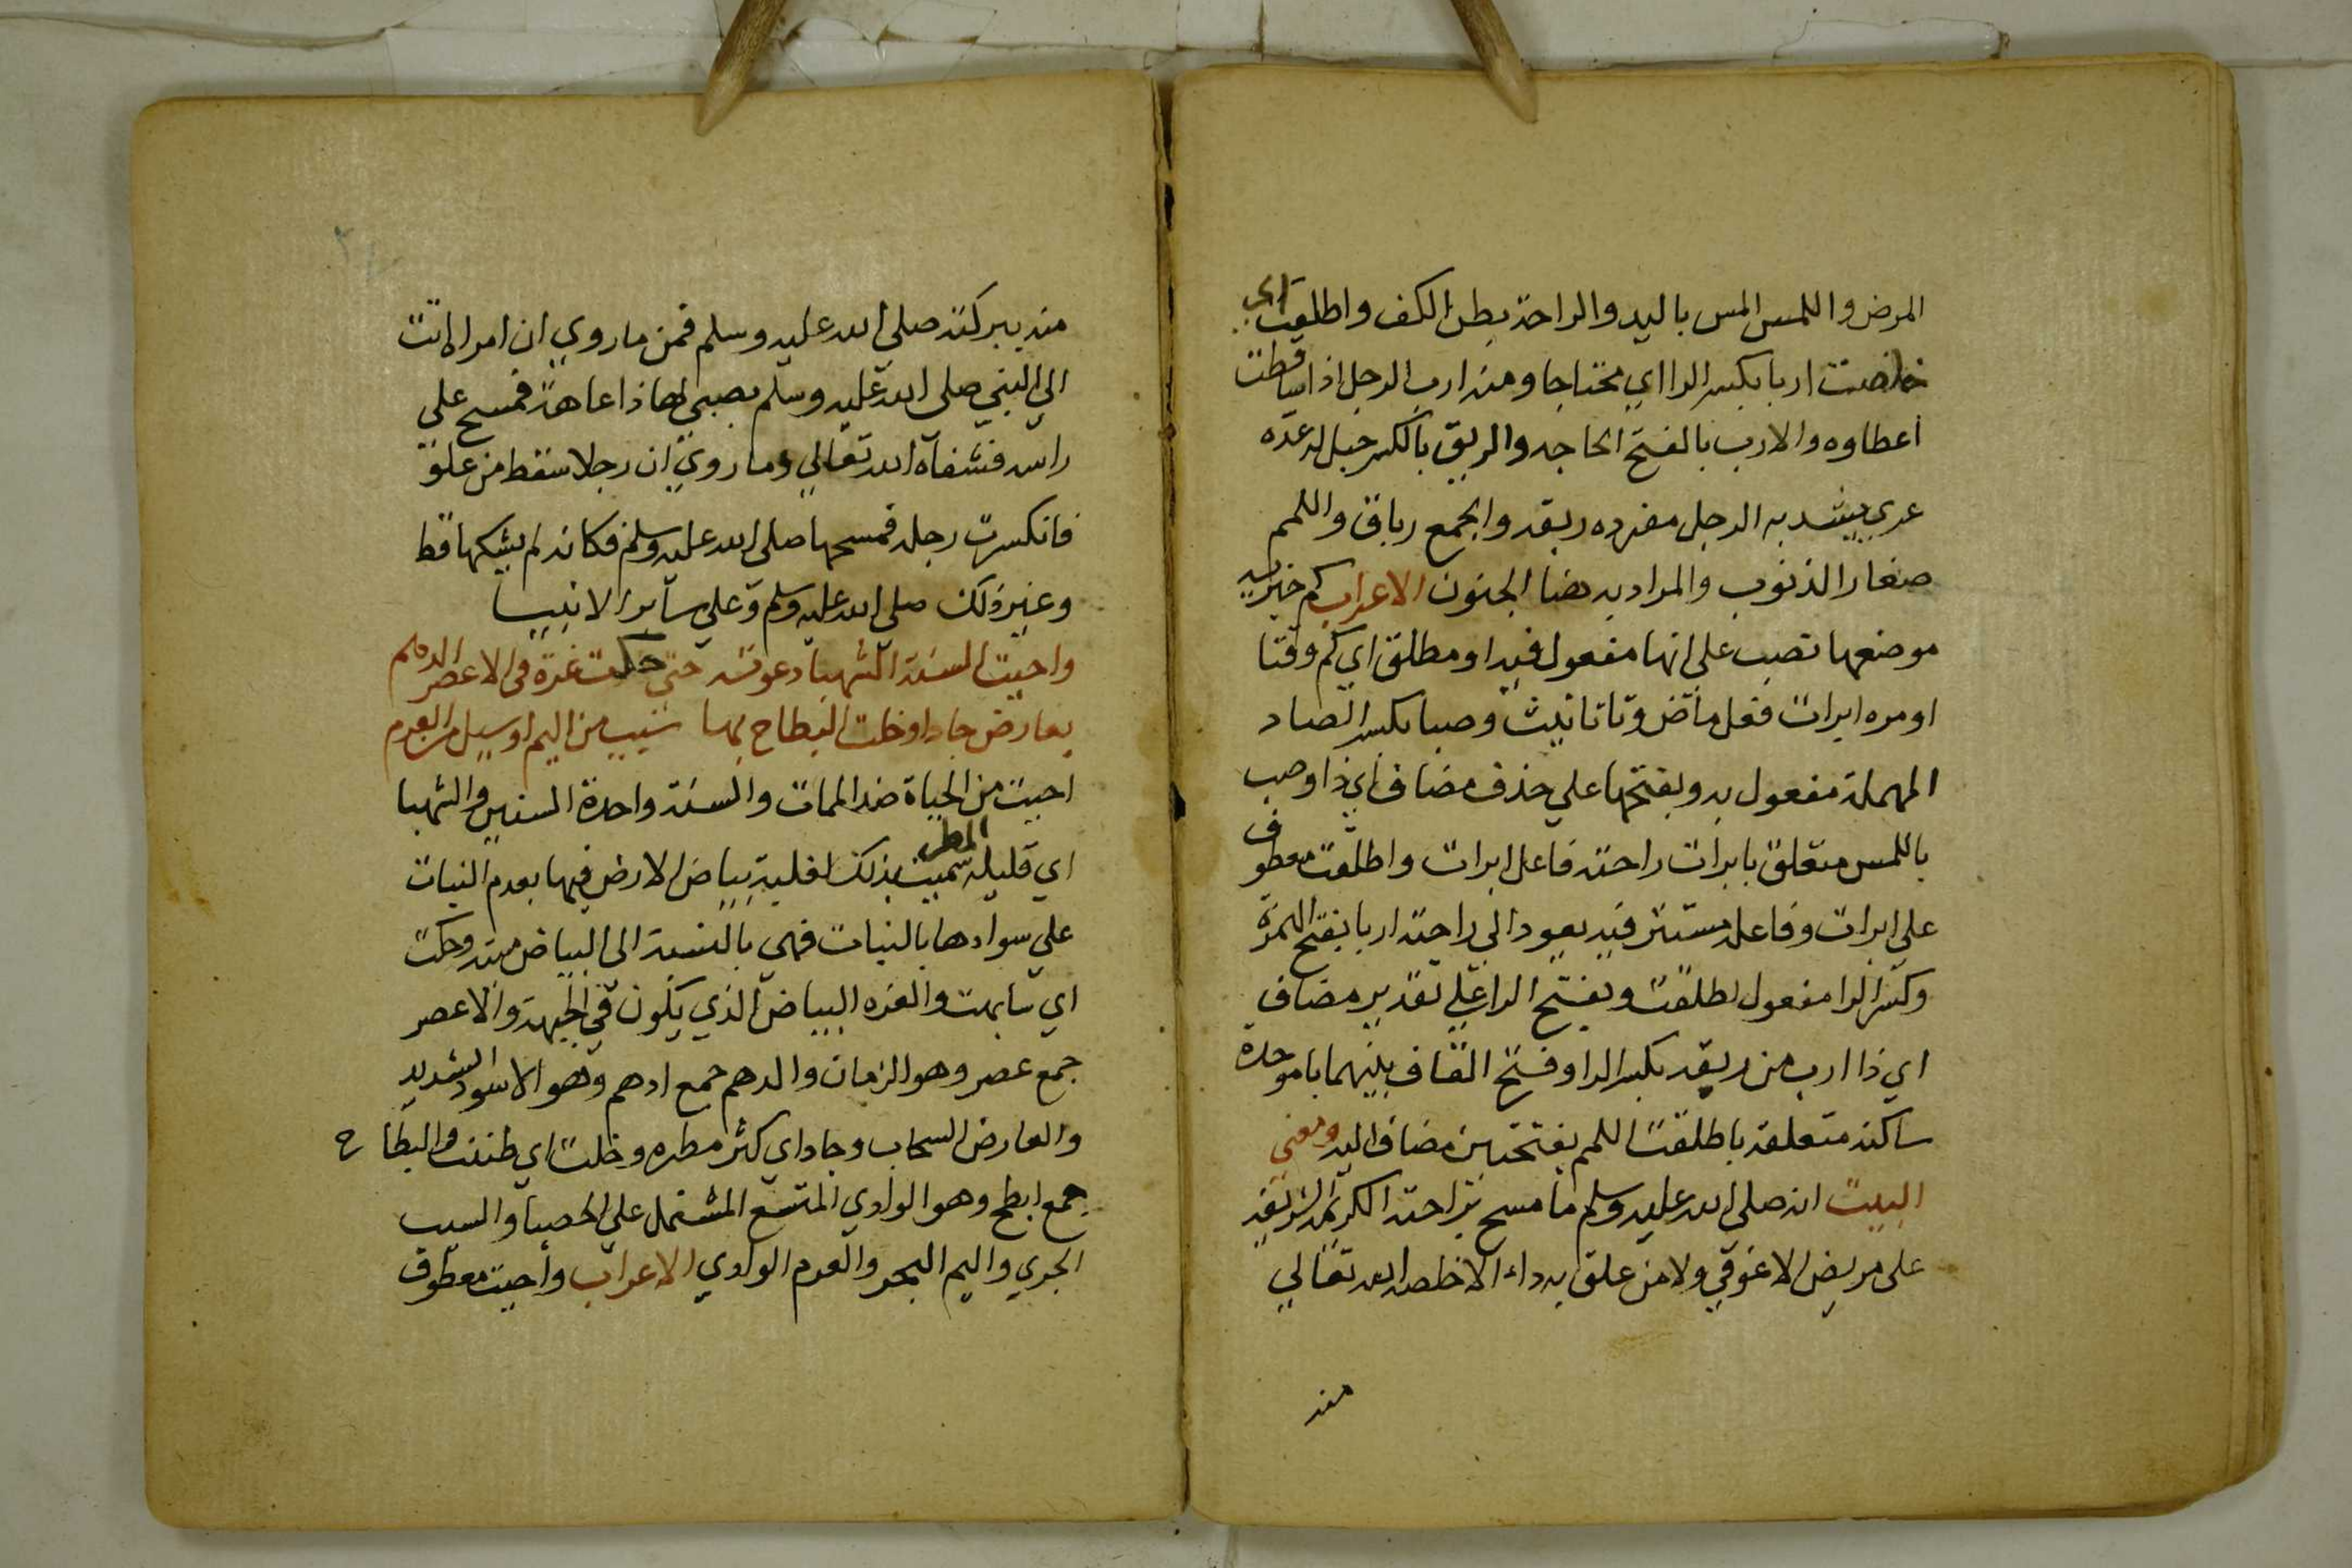 المرض واللمس المس باليد والراحة بطن الكف واطلقت اي
خلصت اربا بكسر الرا اي محتاجا ومنه ارب الرجل اذا ساقطت
اعطاوه والارب بالفتح الحاجه والربق بالكسر حبل له عدة
عري يشد به الرجل مفرده ربقه والجمع رباق واللمم
صغار الذنوب والمراد به هنا الجنون الاعراب كم خبريه
موضعها نصب علي انها مفعول فيه او مطلق اي كم وقتا
او مره ابرات فعل ماض وتا تانيث وصبا بكسر الصاد
المهملة مفعول به وبفتحها علي حذف مضاف اي ذا وصب
باللمس متعلق بابرات راحته فاعل ابرات واطلقت معطوف
علي ابرات وفاعله مستتر فيه يعود الي راحته اربا بفتح الهمزة
وكسر الرا مفعول لطلقت وبفتح الرا علي تقدير مضاف
اي ذا ارب من ربقه بكسر الرا وفتح القاف بينهما با موحدة
ساكنه متعلقة باطلقت اللمم بفتحتين مضاف اليه ومعني
البيت انه صلي الله عليه وسلم ما مسح براحته الكريمة الشريفة
على مريض الا عوفي ولا من علق به داء الا خلصه الله تعالي
منه
منه ببركته صلي الله عليه وسلم فمن ما روي ان امراة اتت
الي النبي صلي الله عليه وسلم بصبي لها ذا عاهة فمسح على
راسه فشفاه الله تعالي وما روي ان رجلا سقط من علو
فانكسرت رجله فمسحها صلي الله عليه وسلم فكانه لم يشكها قط
وغير ذلك صلي الله عليه وسلم وعلي ساير الانبيا
واحيت السنة الشهبا دعوته حتى حكت غرة في الاعصر الدهم
بعارض جاد او خلت البطاح بها سيب من اليم او سيل من العرم
احيت من الحياة ضد الممات والسنة واحدة السنين والشهبا
اي قليله المطر سميت بذلك لغلبة بياض الارض فيها بعدم النبات
علي سوادها بالنبات فهي بالنسبة الى البياض ميته وحكت
اي شابهت والغره البياض الذي يكون في الجبهة والاعصر
جمع عصر وهو الزمان والدهم جمع ادهم وهو الاسود الشديد
والعارض السحاب وجاد اي كثر مطره وخلت اي ظننت والبطاح
جمع ابطح وهو الوادي المتسع المشتمل علي الحصبا والسيب
الجري واليم البحر والعرم الوادي الاعراب واحيت معطوف